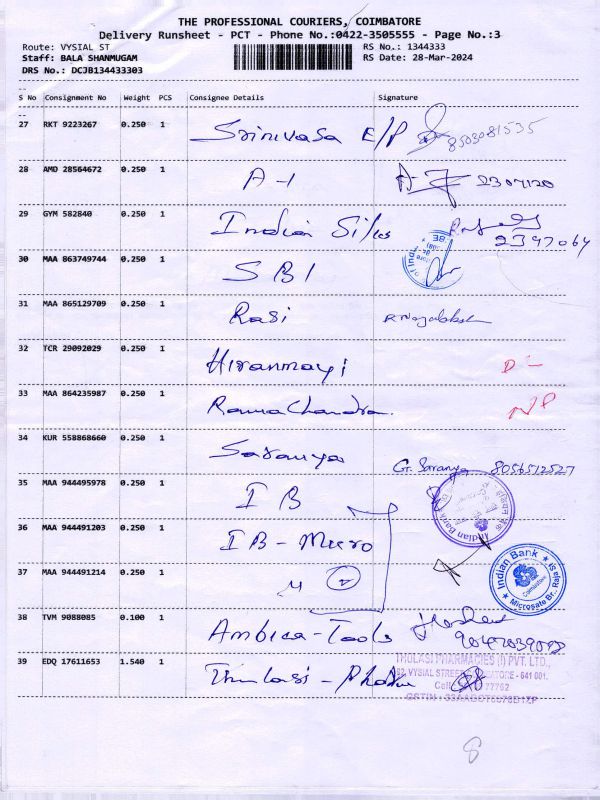 THE PROFESSIONAL COURIERS, COIMBATORE
Delivery Runsheet - PCT - Phone No.:0422-3505555 - Page No.:3
Route: VYSIAL ST RS No.: 1344333
Staff: BALA SHANMUGAM RS Date: 28-Mar-2024
DRS No.: DCJB134433303
S No Consignment No Weight PCS Consignee Details Signature
27 RKT 9223267 0.250 1 Srinivasa E/P 8503081535
28 AMD 28564672 0.250 1 A-1 2307120
29 GYM 582840 0.250 1 Indian Silks 2397064
30 MAA 863749744 0.250 1 SBI
31 MAA 865129709 0.250 1 Rasi
32 TCR 29092029 0.250 1 Hiranmayi D -
33 MAA 864235987 0.250 1 Ramachandra. N/P
34 KUR 558868660 0.250 1 Saranya G. Saranya 8056512527
35 MAA 944495978 0.250 1 IB Indian Bank
36 MAA 944491203 0.250 1 IB-Micro
37 MAA 944491214 0.250 1 Indian Bank Microsate Br., Coimbatore
38 TVM 9088085 0.100 1 Ambica-Tools
39 EDQ 17611653 1.540 1 Thulasi-
THULASI PHARMACIES (I) PVT. LTD.,
VYSIAL STREET, - 641 001.
8